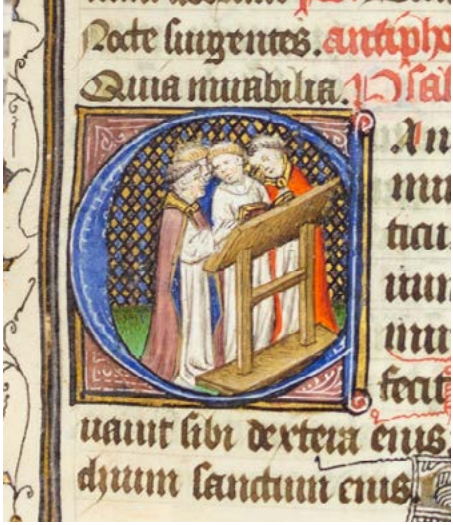 Nocte surgentes. antipho
Quia mirabilia. Psal
C An
ticu
fecit
uauit sibi dextera eius.
chium sanctum eius.